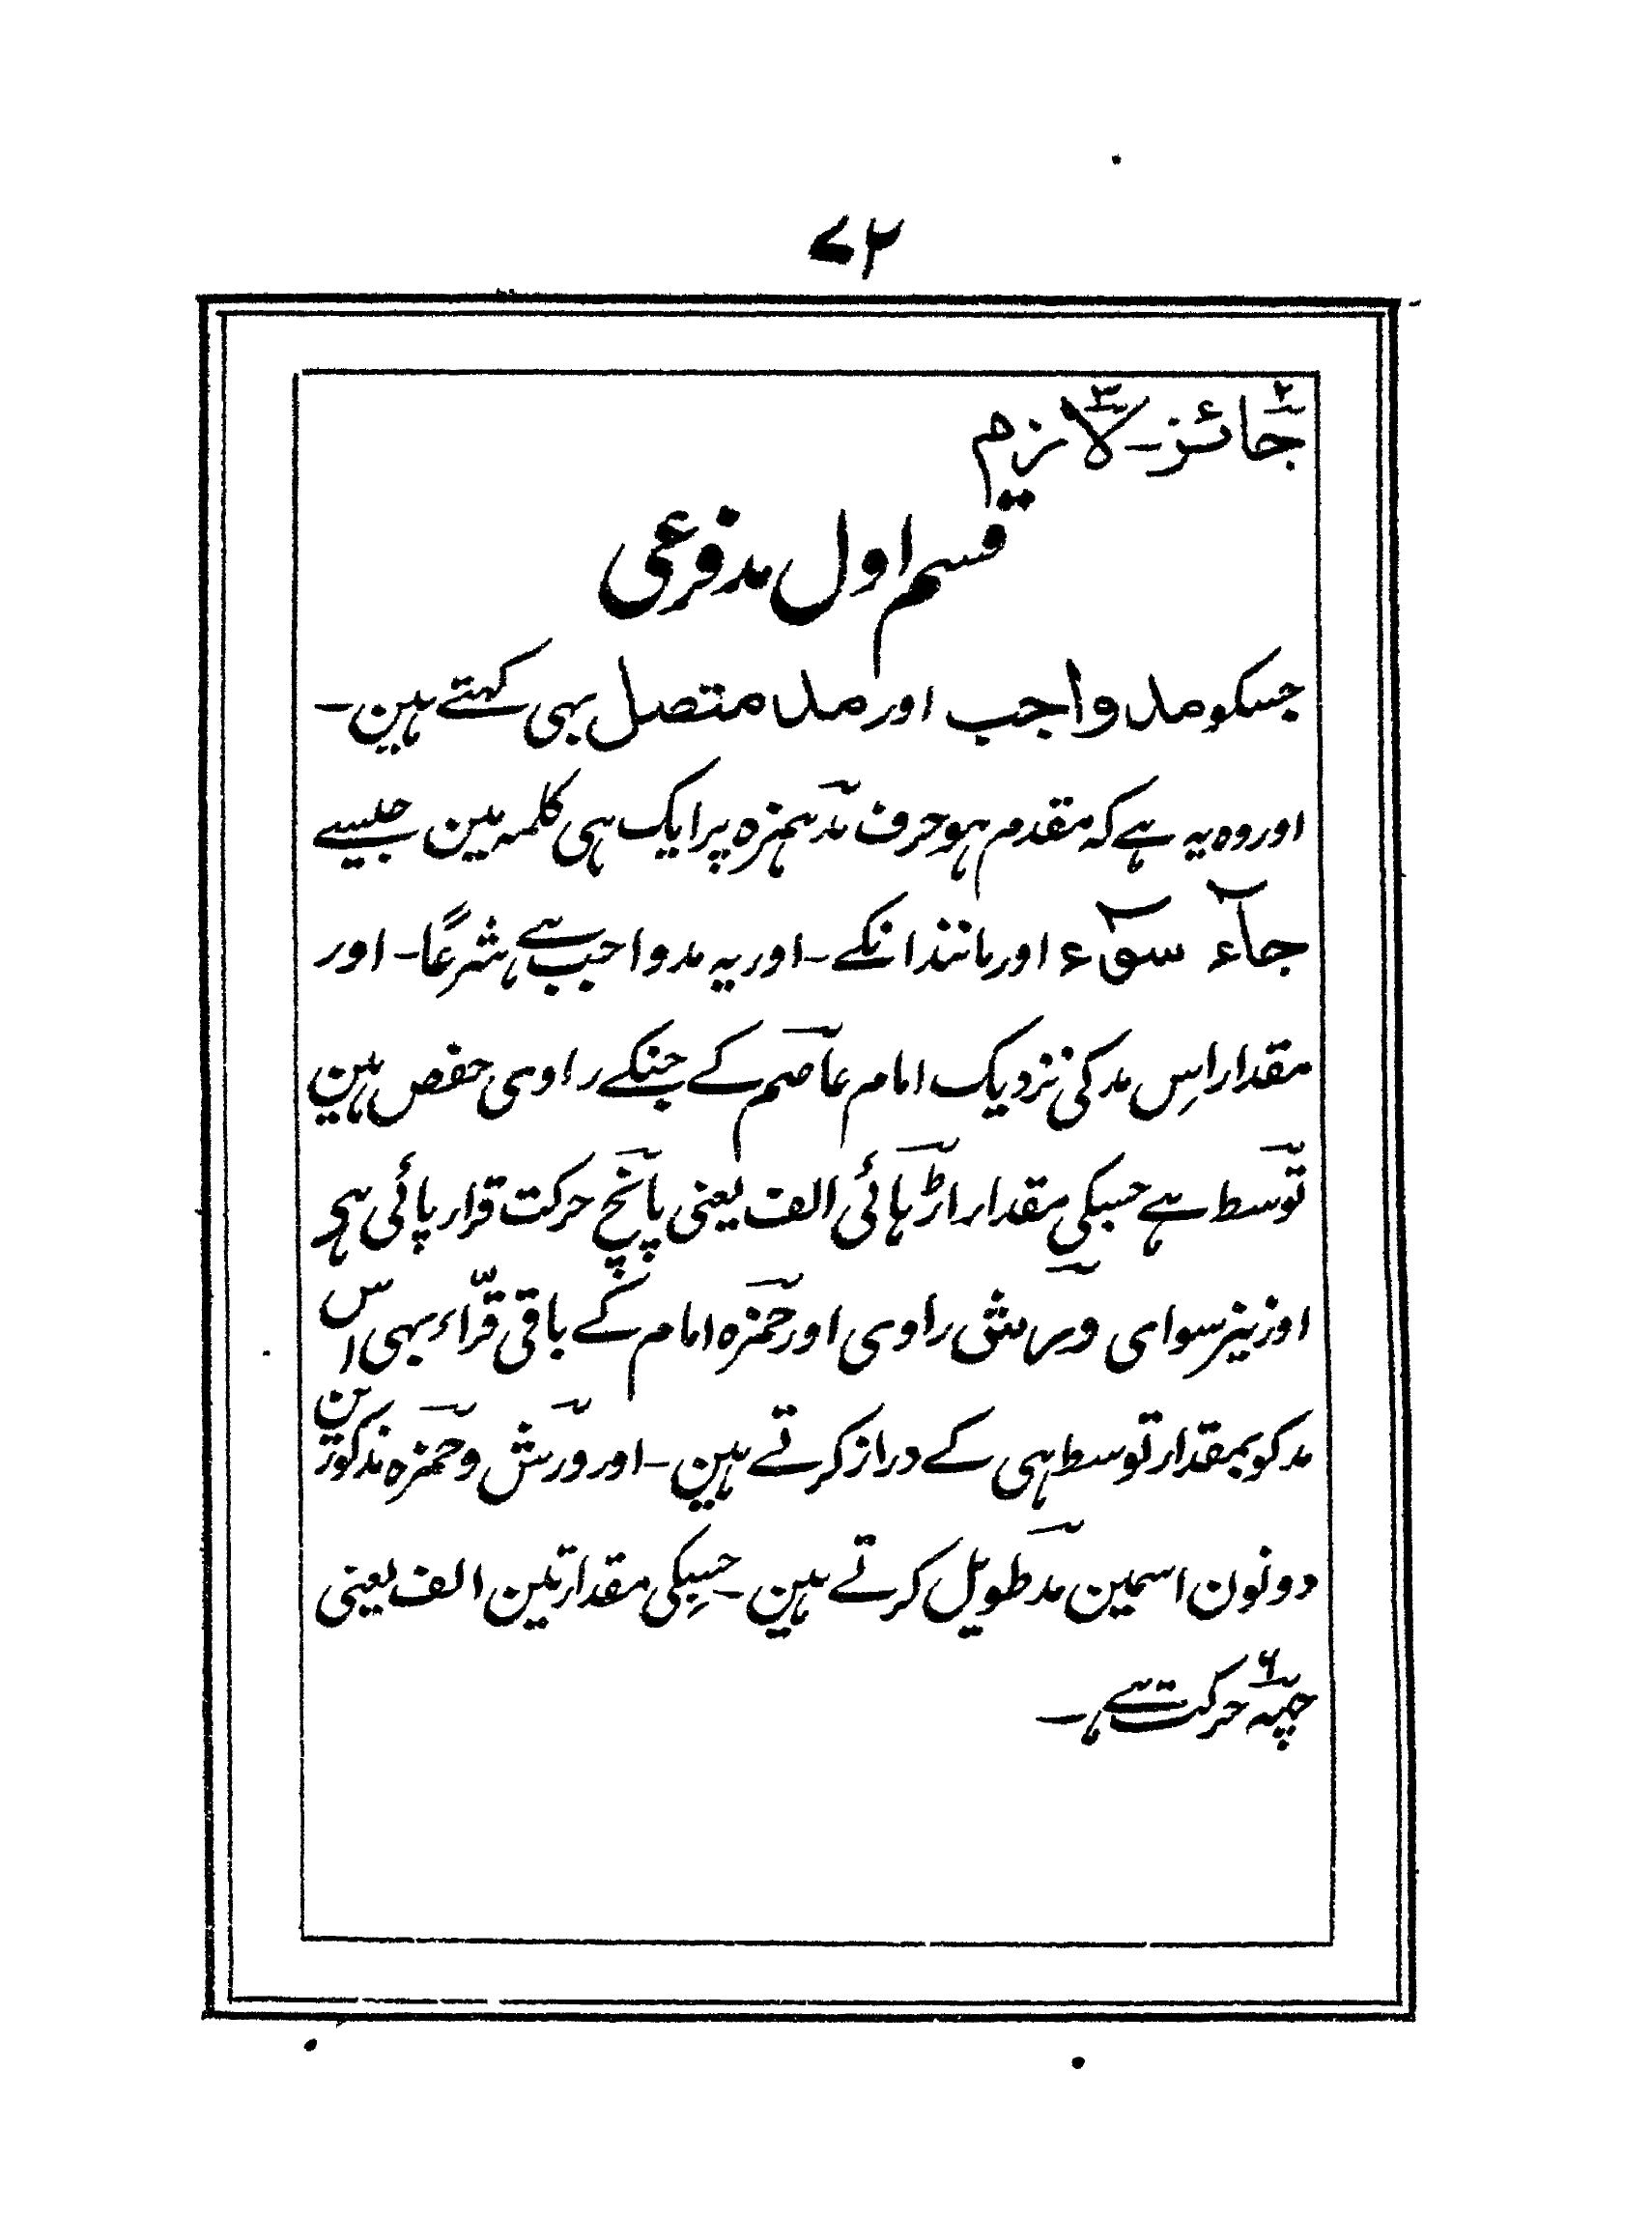 ۷۲
۲جائز۔ ۳لازم
قسم اول مد فرعی
جسکو مد واجب اور مد متصل بہی کہتے ہین۔
اور وہ یہ ہے کہ مقدم ہو حرف مد ہمزہ پر ایک ہی کلمہ مین جیسے
جآء سوٓء اور مانند انکے۔ اور یہ مد واجب ہے شرعًا۔ اور
مقدار اس مد کی نزدیک امام عاصم کے جنکے راوی حفص ہین
توسط ہے جسکی مقدار اڑہائی الف یعنی پانچ حرکت قرار پائی ہی
اور نیز سوای ورش راوی اور حمزہ امام کے باقی قرّاء بہی اس
مد کو بمقدار توسط ہی کے دراز کرتے ہین۔ اور ورش و حمزہ مذکورین
دونون اسمین مد طویل کرتے ہین۔ جسکی مقدار تین الف یعنی
چہہ۶ حرکت ہے۔